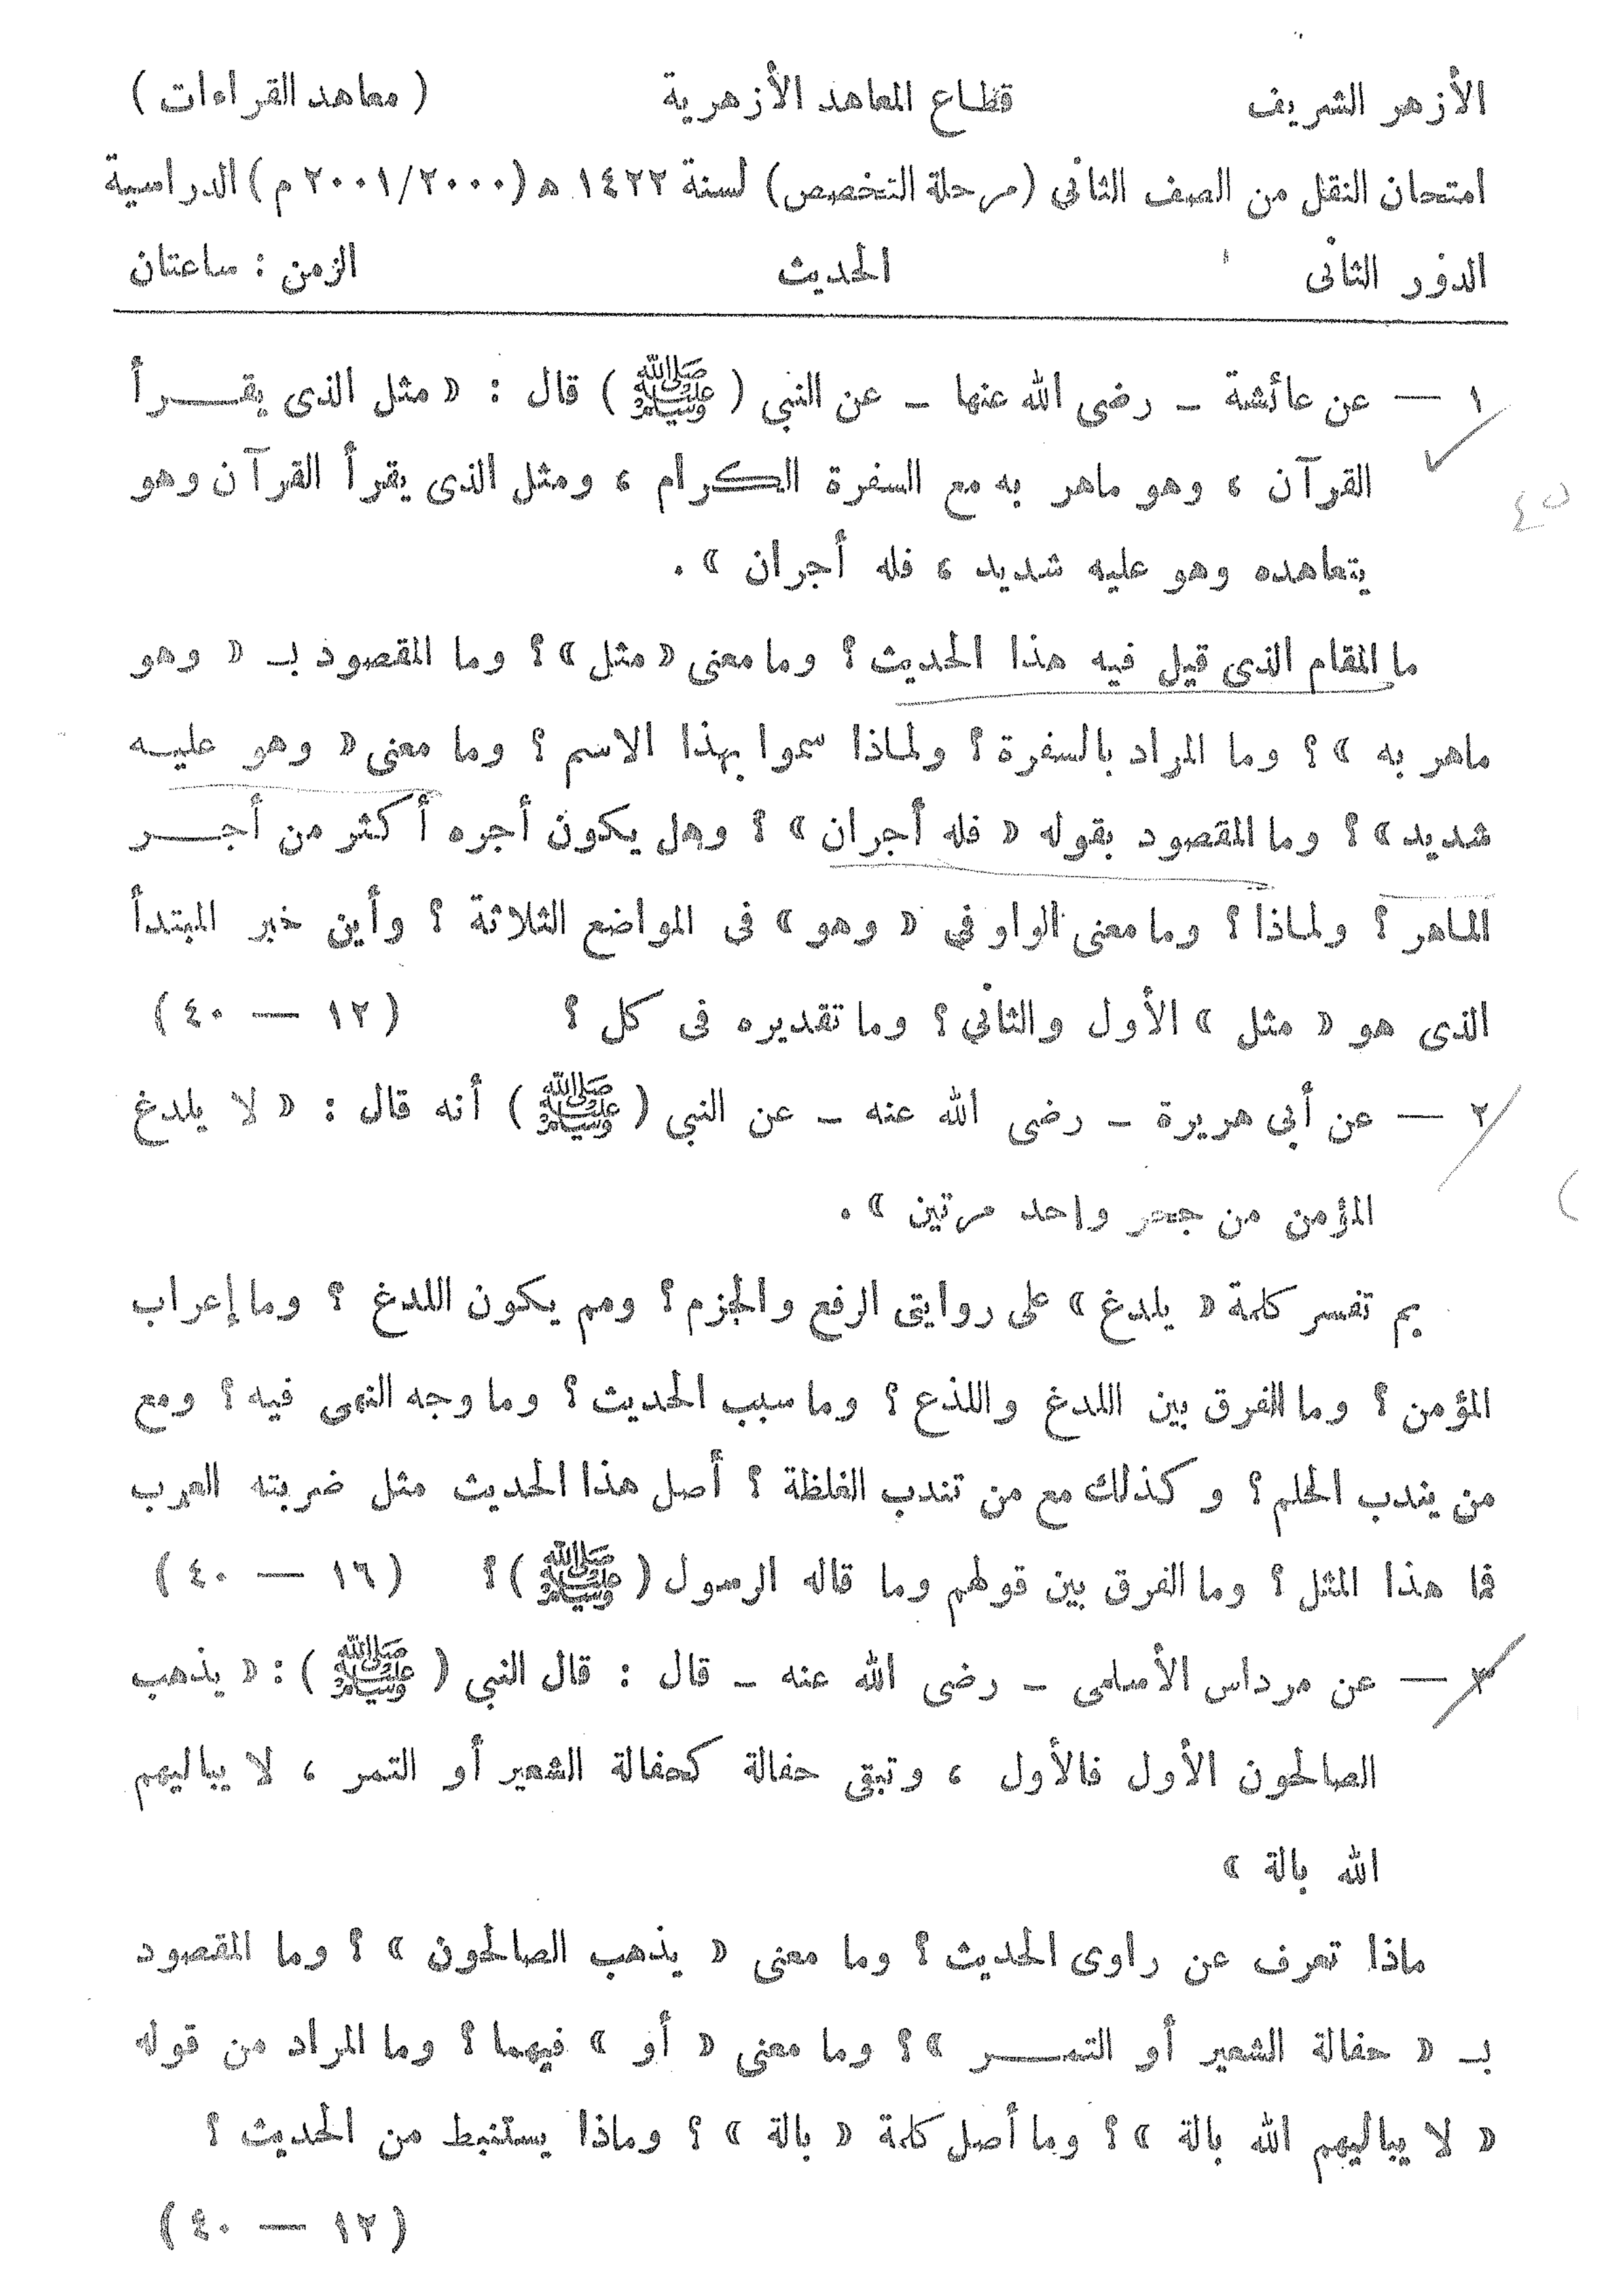 الأزهر الشريف قطاع المعاهد الأزهرية ( معاهد القراءات )
امتحان النقل من الصف الثانى (مرحلة التخصص) لسنة ١٤٢٢ ه (٢٠٠١/٢٠٠٠ م) الدراسية
الدور الثانى الحديث الزمن : ساعتان
١ — عن عائشة – رضى الله عنها – عن النبي ( ﷺ ) قال : « مثل الذى يقـــرأ
القرآن ، وهو ماهر به مع السفرة الكرام ، ومثل الذى يقرأ القرآن وهو
٤٥
يتعاهده وهو عليه شديد ، فله أجران » .
ما المقام الذى قيل فيه هذا الحديث ؟ وما معنى « مثل » ؟ وما المقصود بـ « وهو
ماهر به » ؟ وما المراد بالسفرة ؟ ولماذا سموا بهذا الاسم ؟ وما معنى « وهو عليـــه
شديد » ؟ وما المقصود بقوله « فله أجران » ؟ وهل يكون أجره أكثر من أجـــر
الماهر ؟ ولماذا ؟ وما معنى الواو في « وهو » فى المواضع الثلاثة ؟ وأين خبر المبتدأ
الذى هو « مثل » الأول والثاني ؟ وما تقديره فى كل ؟ ( ١٢ — ٤٠ )
٢ — عن أبى هريرة – رضى الله عنه – عن النبي ( ﷺ ) أنه قال : « لا يلدغ
المؤمن من جحر واحد مرتين » .
بم تفسر كلمة « يلدغ » على روايتى الرفع والجزم ؟ ومم يكون اللدغ ؟ وما إعراب
المؤمن ؟ وما الفرق بين اللدغ واللذع ؟ وما سبب الحديث ؟ وما وجه النهى فيه ؟ ومع
من يندب الحلم ؟ وكذلك مع من تندب الغلظة ؟ أصل هذا الحديث مثل ضربته العرب
فما هذا المثل ؟ وما الفرق بين قولهم وما قاله الرسول ( ﷺ ) ؟ ( ١٦ — ٤٠ )
٣ — عن مرداس الأسلمى – رضى الله عنه – قال : قال النبي ( ﷺ ) : « يذهب
الصالحون الأول فالأول ، وتبقى حفالة كحفالة الشعير أو التمر ، لا يباليهم
الله بالة »
ماذا تعرف عن راوى الحديث ؟ وما معنى « يذهب الصالحون » ؟ وما المقصود
بـ « حفالة الشعير أو التمـــر » ؟ وما معنى « أو » فيهما ؟ وما المراد من قوله
« لا يباليهم الله بالة » ؟ وما أصل كلمة « بالة » ؟ وماذا يستنبط من الحديث ؟
( ١٢ — ٤٠ )